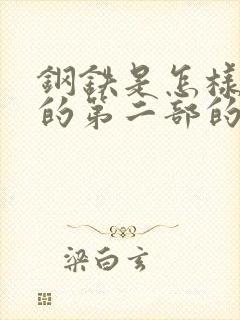 鋼鉄是怎樣
的第二部的
梁白玄